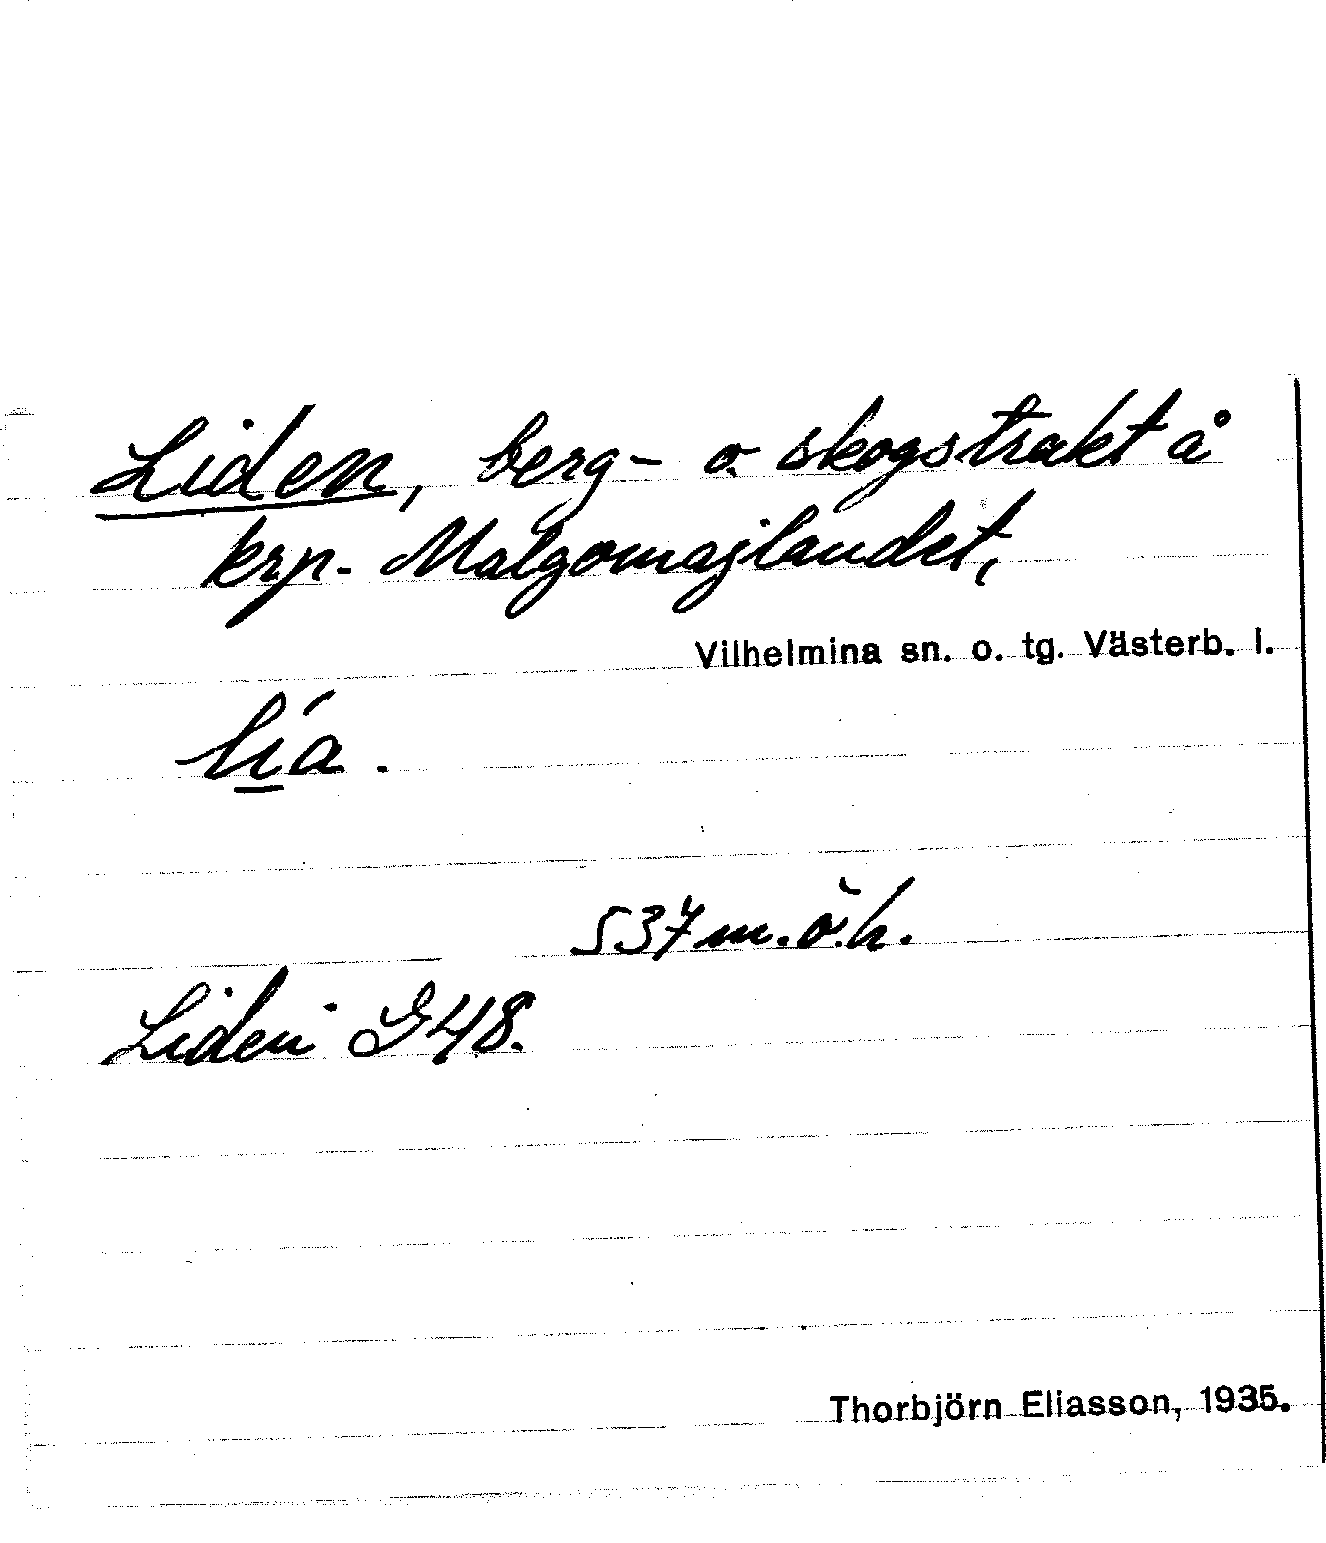 Liden, berg- o. skogstrakt å
krp. Malgomajlandet,
Vilhelmina sn. o. tg. Västerb. l.
lí̱a.
537 m.ö.h.
Liden G48.
Thorbjörn Eliasson, 1935.